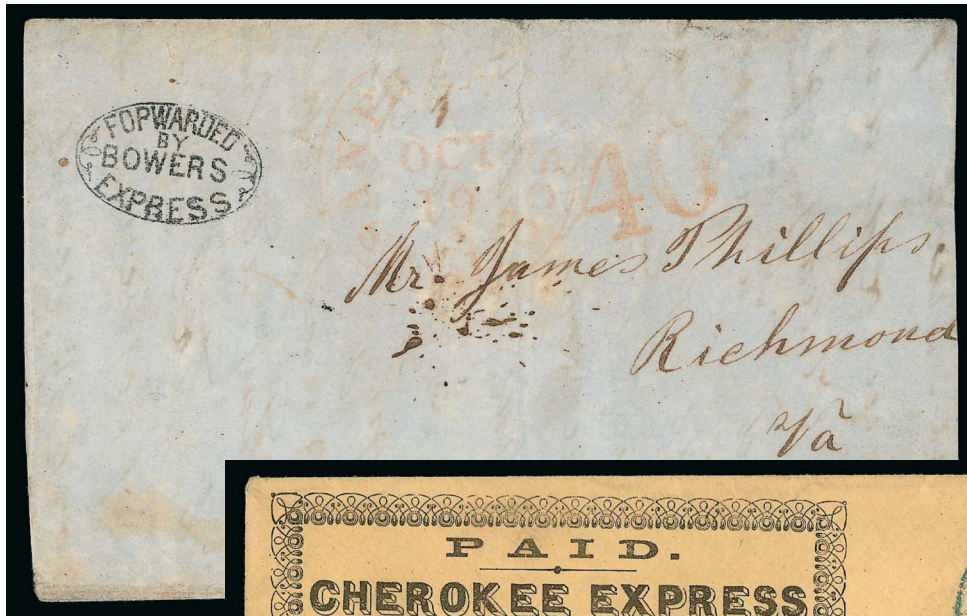 FOPWARDED
BY
BOWERS
EXPRESS
OCT
40
Mr. James Phillips.
Richmond
Va
PAID.
CHEROKEE EXPRESS